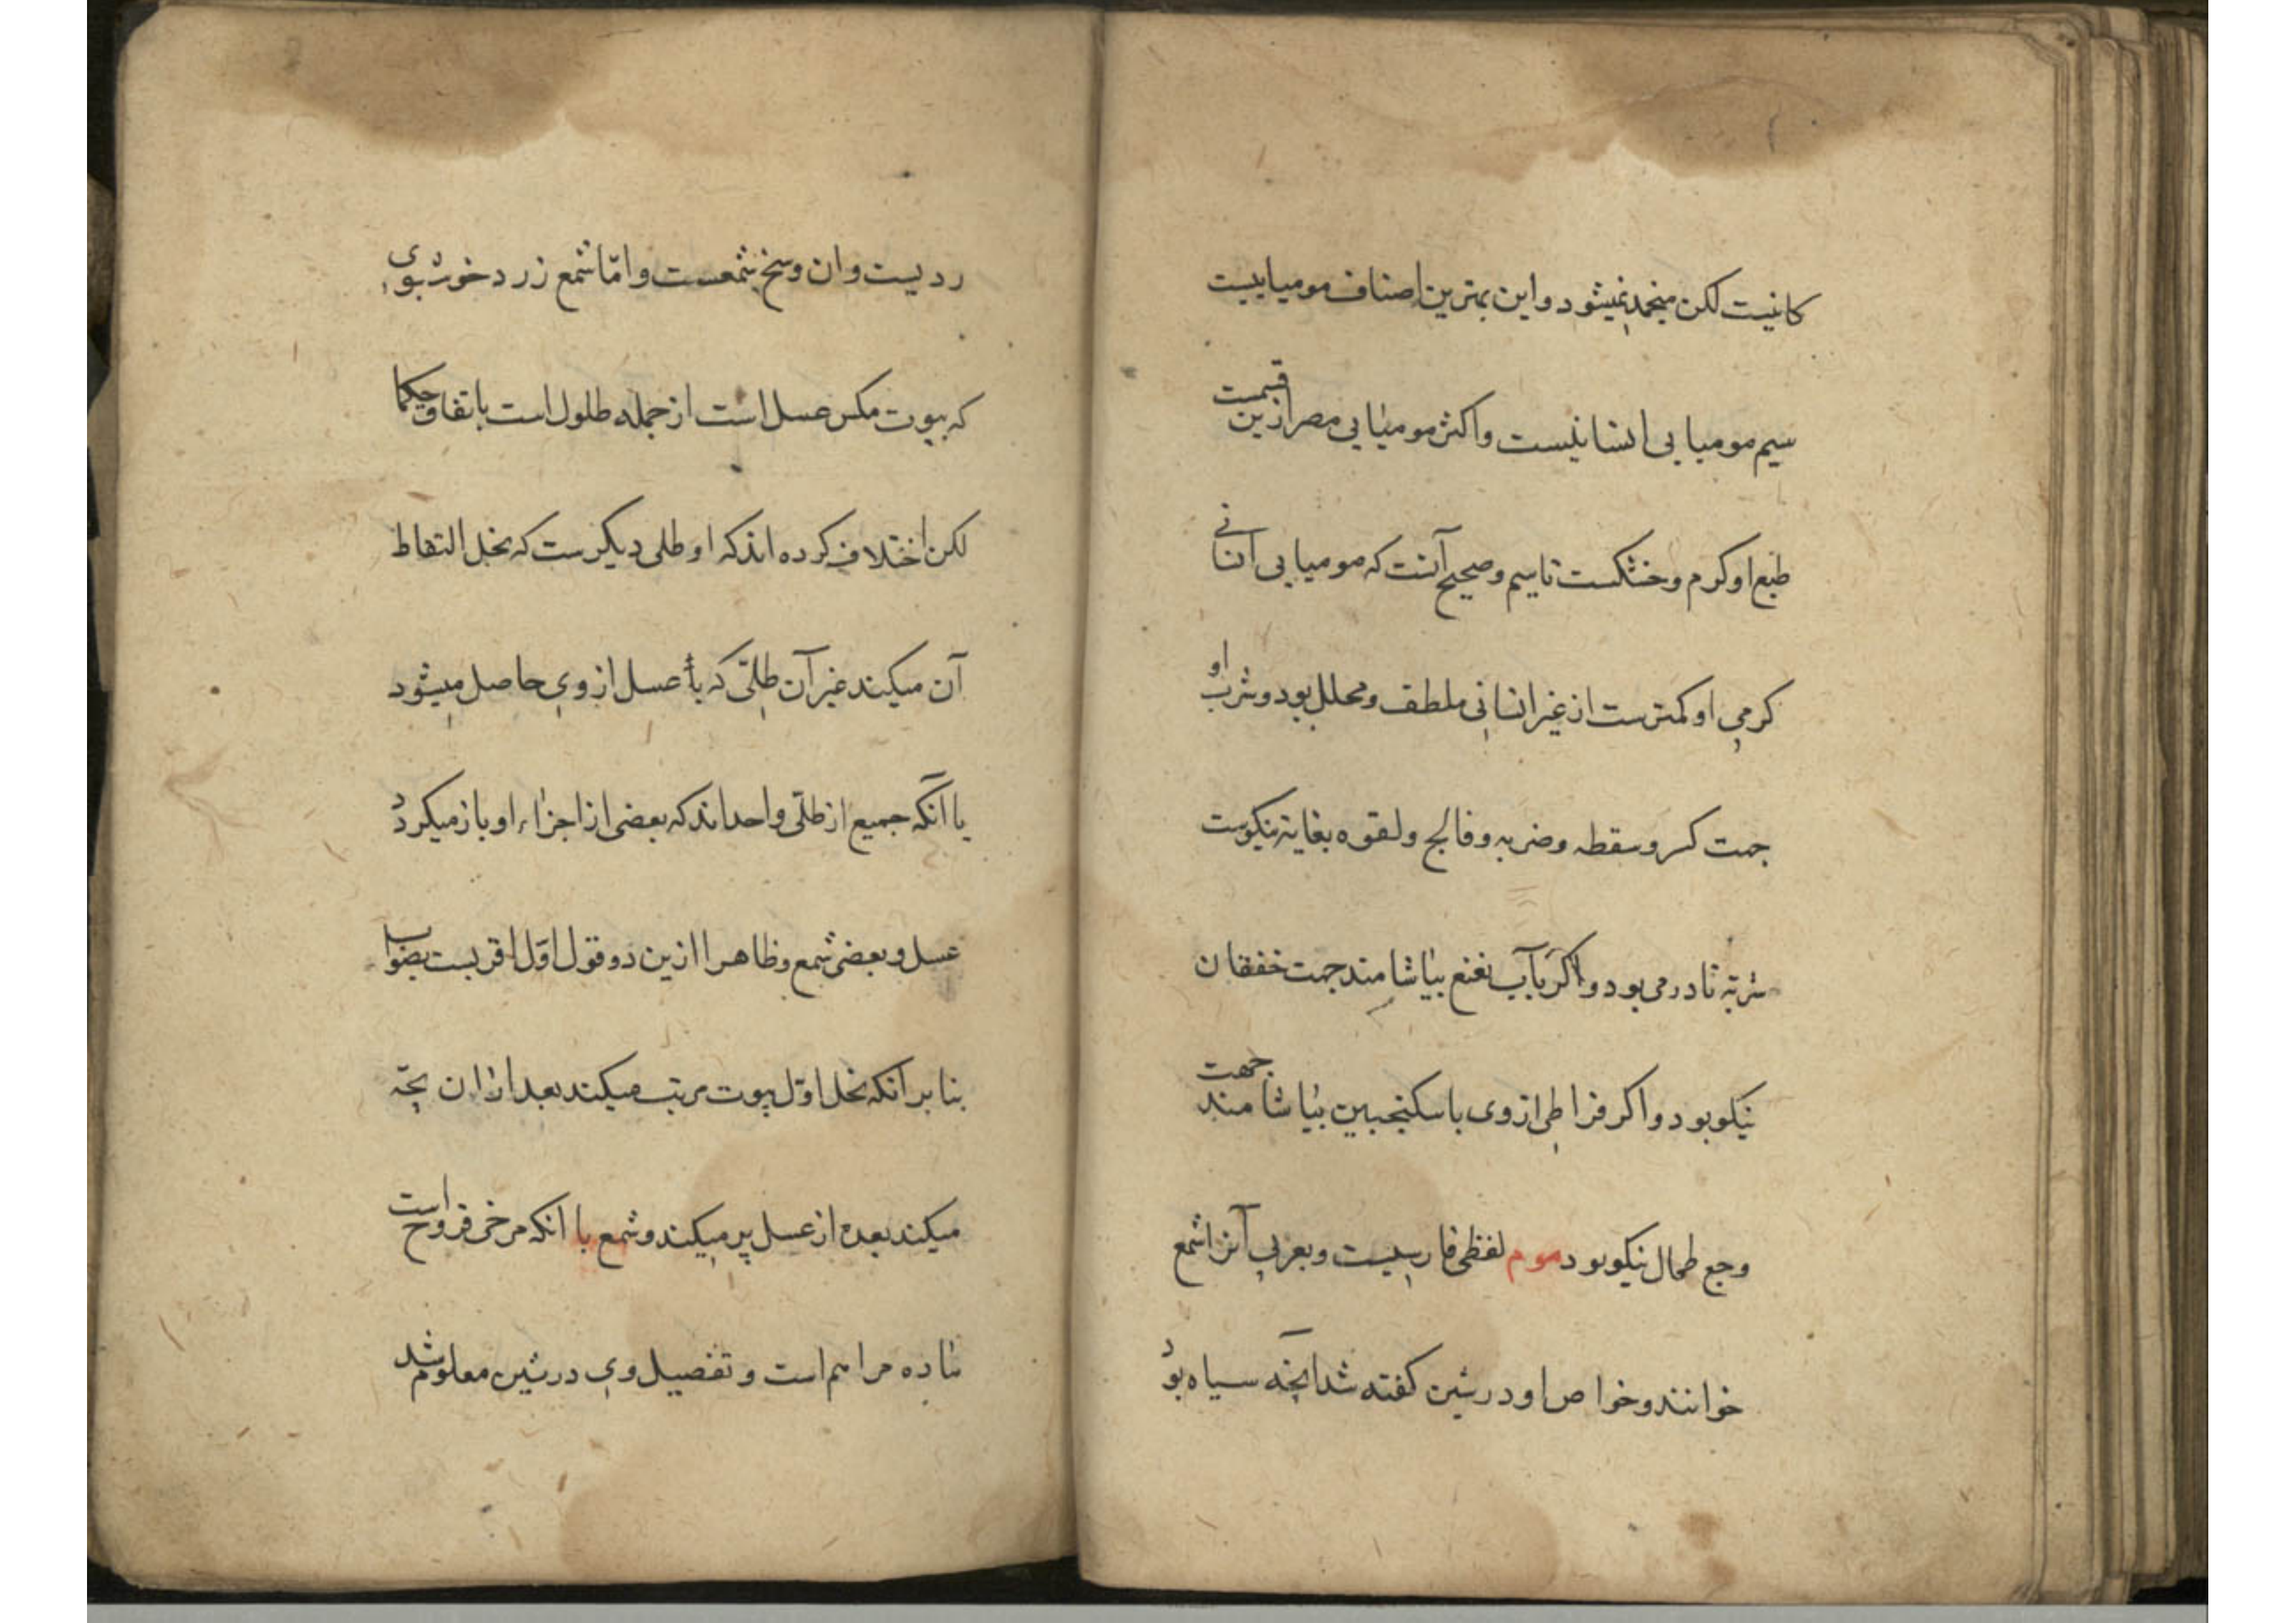 كانیست لكن منجمد نمیشود و این بهترین اصناف مومیاییست
سیم مومیایی انسانیست و اكثر مومیایی مصر ازین قسمست
طبع او كرم و خشكست تا سیم و صحیح آنست كه مومیایی انسانی
كرمی او كمترست از غیر انسانی ملطف و محلل بود و شرب او
جهت كسر و سقطه و ضربه و فالج و لقوه بغایة نیكوست
شربة تا درمی بود و اكر بآب نعنع بیاشامند جهت خفقان
نیكو بود و اكر قراطی از وی با سكنجبین بیاشامند جهت
وجع طحال نیكو بود موم لفظی فارسیست و بعربی آنرا شمع
خوانند و خواص او در شین كفته شد انچه سیاه بود
ردیست و ان وسخ شمعست و امّا شمع زرد خوش بوی
كه بیوت مكس عسل است از جمله طلول است باتفاق حكما
لكن اختلاف كرده اند كه او طلی دیكرست كه نحل التقاط
آن میكند غیر آن طلّی كه عسل از وی حاصل میشود
یا آنكه جمیع از طلّی واحداند كه بعضی از اجزاء او باز میكردد
عسل و بعضی شمع و ظاهرا ازین دو قول اوّل اقربست بصواب
بنا بر انكه نحل اوّل بیوت مرتب میكند بعد ازان بچّه
میكند بعده از عسل پر میكند و شمع با انكه مرخی قروح است
ماده مراهم است و تفصیل وی در شین معلوم شد